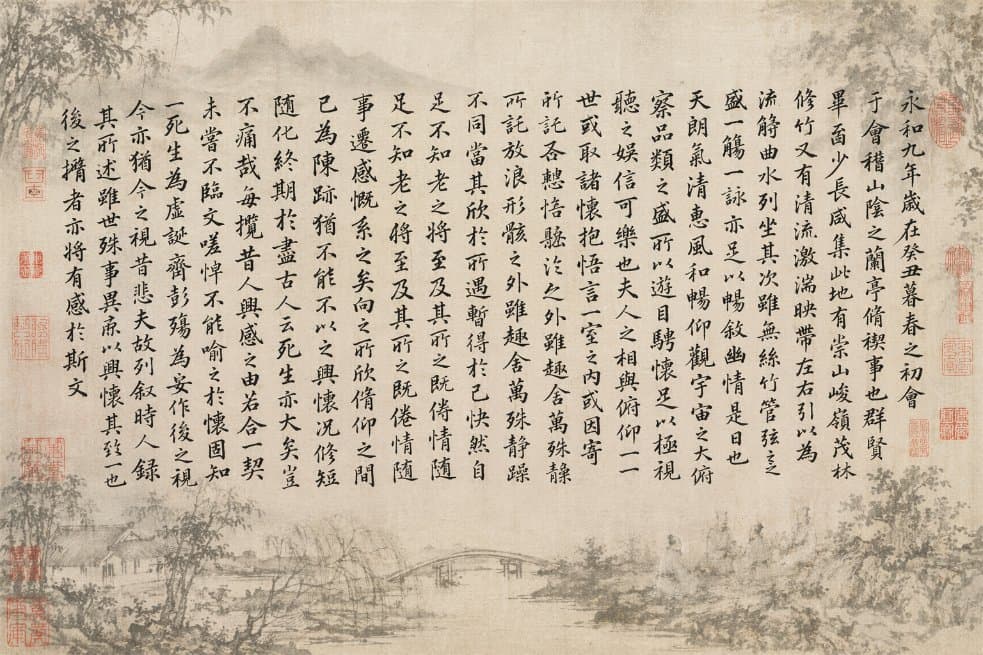 永和九年歲在癸丑暮春之初會
于會稽山陰之蘭亭脩禊事也群賢
畢少長咸集此地有崇山峻嶺茂林
修竹又有清流激湍映帶左右引以為
流觴曲水列坐其次雖無絲竹管弦之
盛一觴一詠亦足以暢敘幽情是日也
天朗氣清惠風和暢仰觀宇宙之大俯
察品類之盛所以遊目騁懷足以極視
聽之娛信可樂也夫人之相與俯仰一一
世或取諸懷抱悟言一室之內或因寄
所託悟之外雖趣舍萬殊靜
所託放浪形骸之外雖趣舍萬殊静躁
不同當其欣於所遇暫得於己快然自
足不知老之將至及其所之既倦情隨
足不知老之將至及其所之既倦情隨
事遷感慨系之矣向之所欣脩仰之間
已為陳跡猶不能不以之興懷況修短
隨化終期於盡古人云死生亦大矣豈
不痛哉每攬昔人興感之由若合一契
未嘗不臨文嗟悼不能喻之於懷固知
一死生為虛誕齊彭殤為妄作後之視
今亦猶今之視昔悲夫故列叙時人錄
其所述雖世殊事異以興懷其一也
後之者亦將有感於斯文